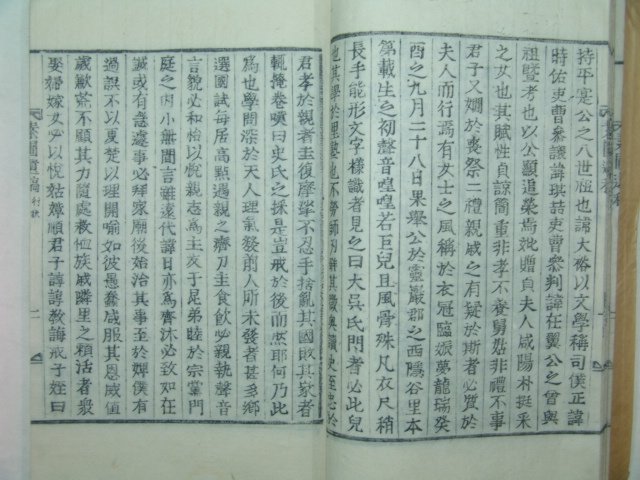 持平寔公之八世祖也諱大畧以文學稱司僕正諱
時佑吏曹叅議諱琪詰吏曹叅判諱在翼公之曾與
祖曁考也以公顯道榮焉妣贈貞夫人咸陽朴挺采
之女也其賦性貞諒簡重非孝不養舅姑非禮不事
君子又嫺於喪祭二禮親戚之有疑於斯者必質於
夫人而行焉有女士之風稱於衣冠臨娠夢龍瑞癸
酉之九月二十八日果擧公於靈巖郡之西隱谷里本
第載生之初聲音喤喤若巨兒且風骨殊凡衣尺稍
長手能形文字樣識者見之曰大吳氏門者必此兒
也其學於理塾也不勞師
君孝於親者圭復摩挲不忍手捨亂其國敗其家者
輒掩卷嘆曰史氏之採是豈戒於後而然耶何乃此
爲也學問深於天人理氣發前人所未發者甚多鄕
選國試母居高點過親之齋刀圭食飮必親執聲音
言貌必和怡以悅親志爲主友于昆弟睦於宗黨門
庭之內小無間言雖遠代諱日亦爲齊沐必致如在
誠或有急遽事必拜家廟後始治其事至於婢僕有
過誤不以夏楚以理開喩如彼愚蠢咸服其恩威值
歲歉荒不顧其力隨處救恤族戚隣里之稍活者衆
娶婦嫁女必以悅姑嫜順君子諄諄敎誨戒子姪曰